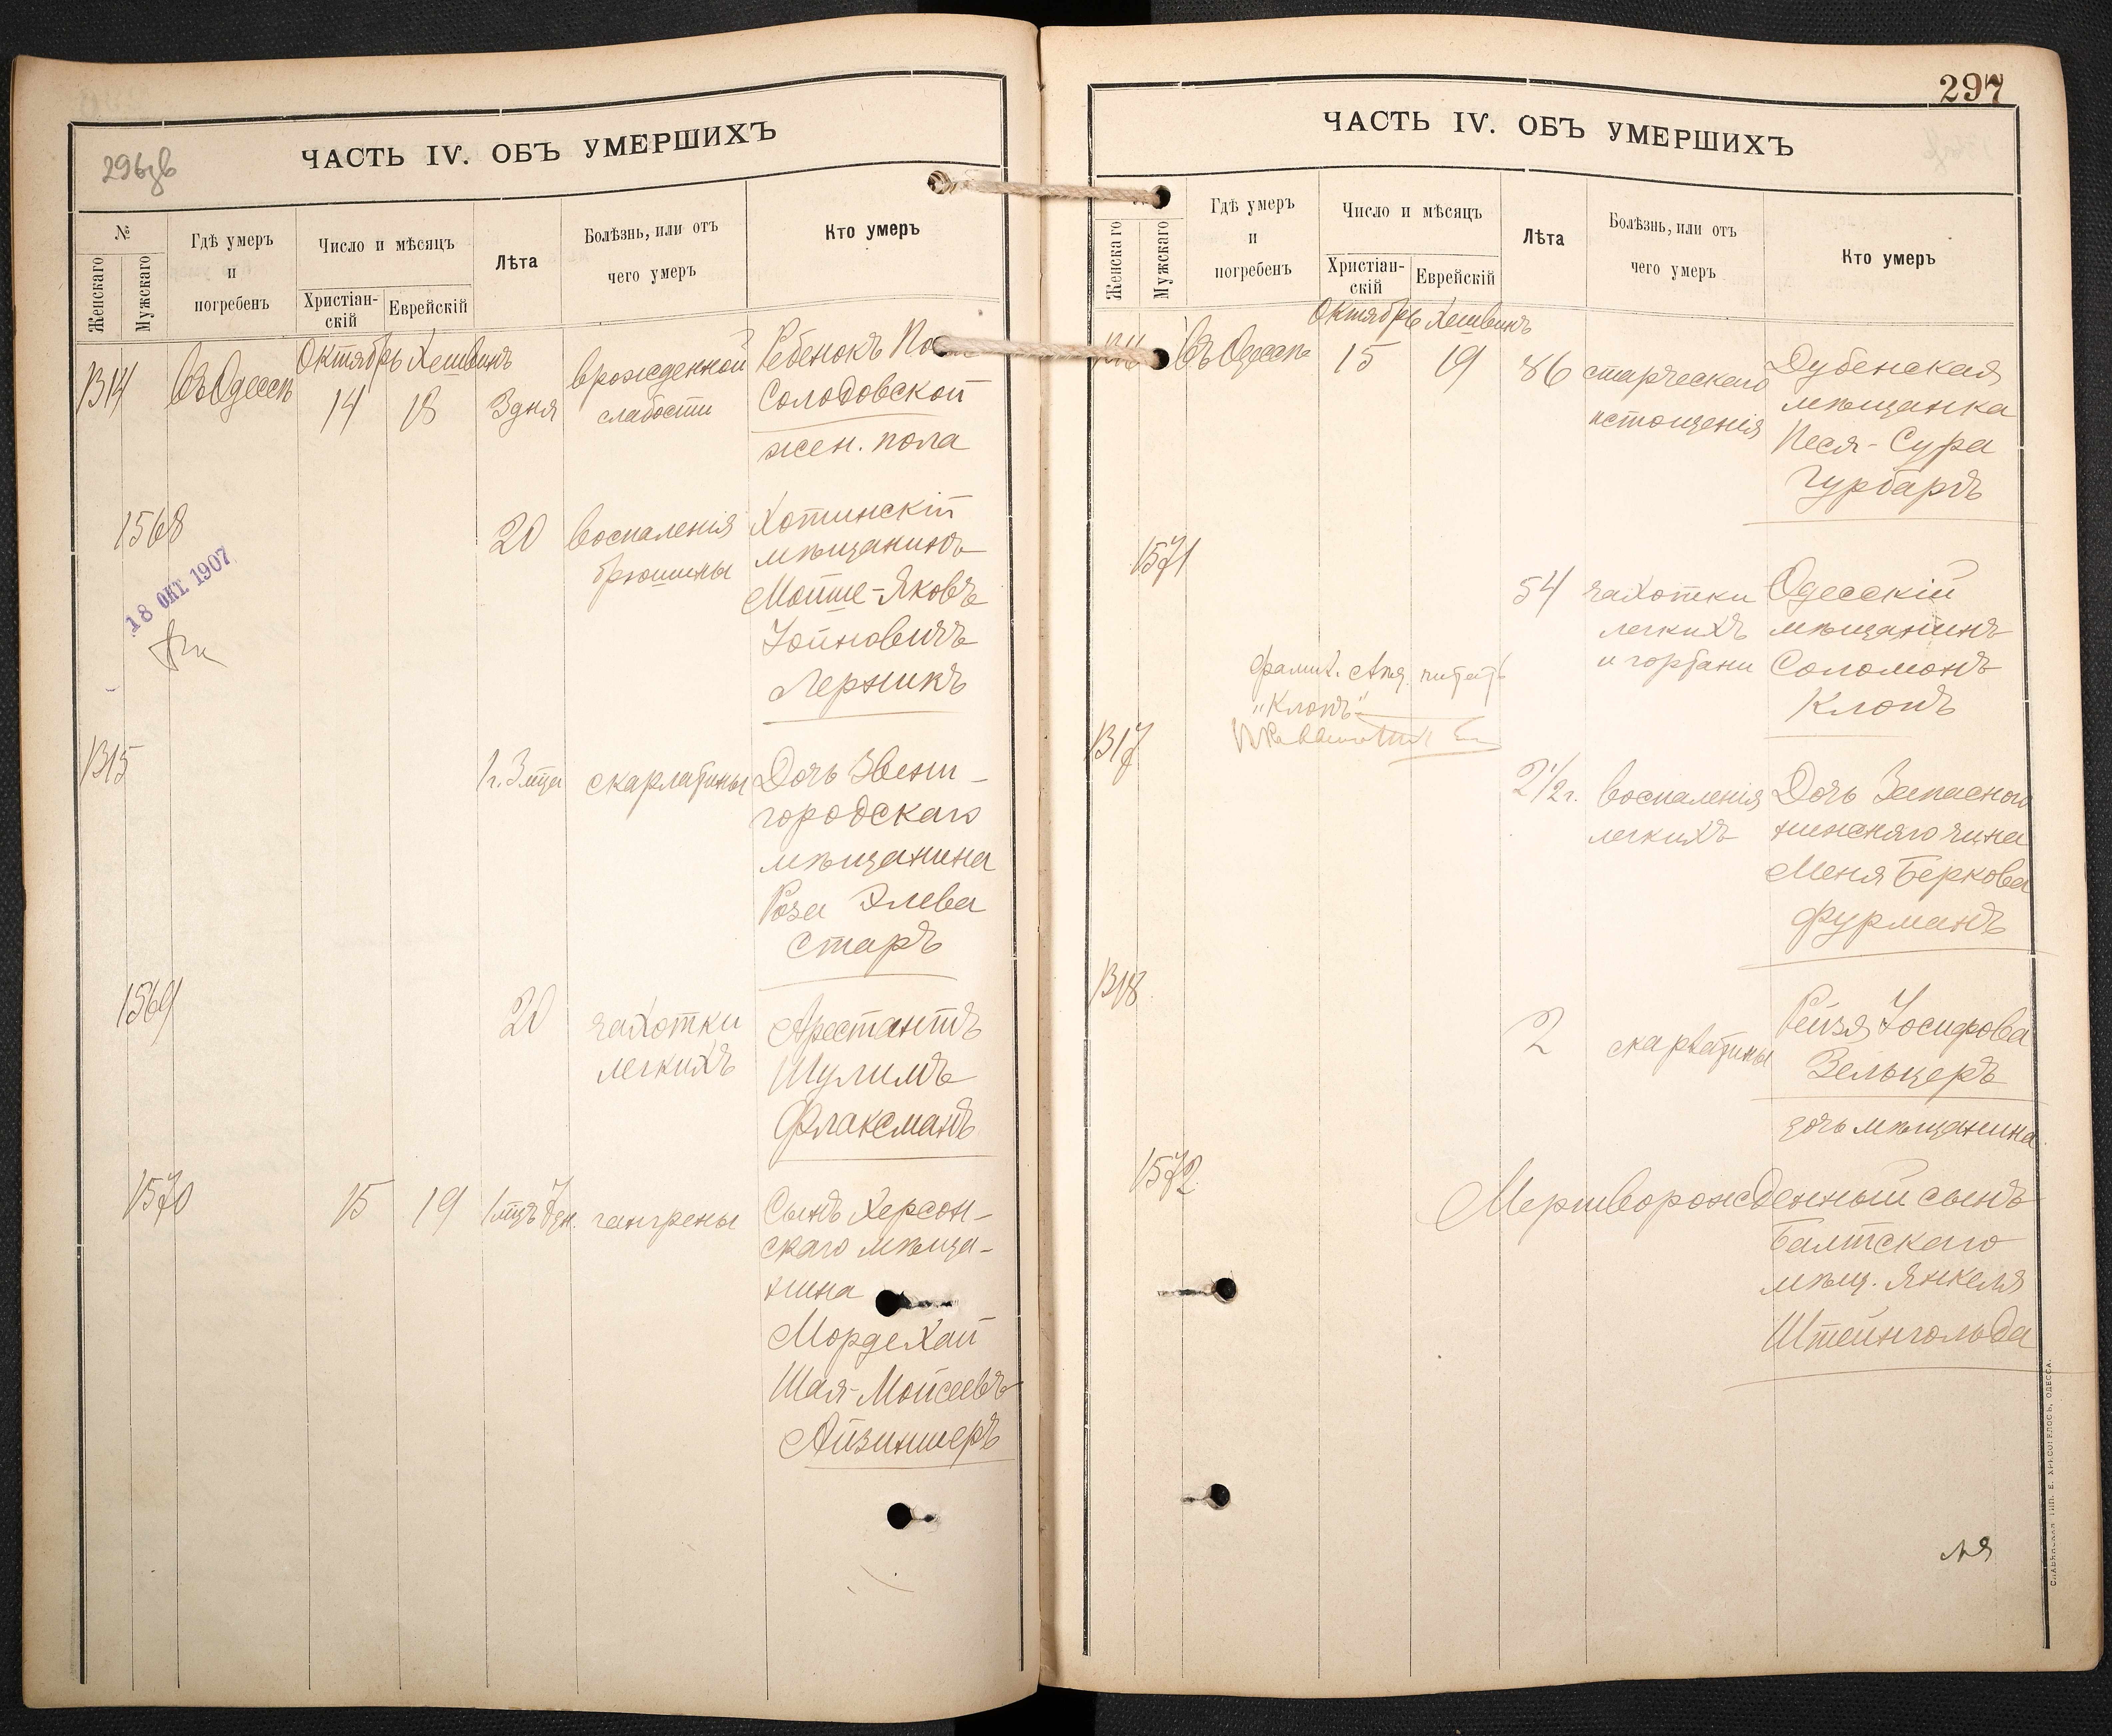 296об
ЧАСТЬ IV. ОБЪ УМЕРШИХЪ
№
Женскаго
Мужскаго
Гдѣ умеръ
и
погребенъ
Число и мѣсяцъ
Христіан-
скій
Еврейскій
Лѣта
Болѣзнь, или отъ
чего умеръ
Кто умеръ
Октябрь Хешвинъ
1314
Въ Одессѣ
14
18
3 дня
врожденной
слабости
Ребенокъ
Солодовской
жен. пола
1568
18 ОКТ. 1907
20
воспаленія
брюшины
Хотинскій
мѣщанинъ
Мойше-Яковъ
Іойновичъ
Лерникъ
1315
1 г. 3 мца
скарлатины
Дочь Звени-
городскаго
мѣщанина
Роза Элева
Старъ
1569
20
чахотки
легкихъ
Арестантъ
Шулимъ
Флаксманъ
1570
15
19
1 мцъ 7 дн.
гангрены
Сынъ Херсон-
скаго мѣща-
нина
Мордехай
Шая-Мойсеевъ
Айзиншеръ
297
ЧАСТЬ IV. ОБЪ УМЕРШИХЪ
Женскаго
Мужскаго
Гдѣ умеръ
и
погребенъ
Число и мѣсяцъ
Христіан-
скій
Еврейскій
Лѣта
Болѣзнь, или отъ
чего умеръ
Кто умеръ
Октябрь Хешвинъ
1316
Въ Одессѣ
15
19
86
старческаго
истощенія
Дубенская
мѣщанка
Песя-Сура
Гурбаръ
1571
54
чахотки
легкихъ
и гортани
Одесскій
мѣщанинъ
Соломонъ
Клопъ
Фамил. читать
"Клопъ"
1317
2 1/2 г.
воспаленія
легкихъ
Дочь Запаснаго
нижняго чина
Меня Беркова
Фурманъ
1318
2
скарлатины
Рейзя Іосифова
Зельцеръ
дочь мѣщанина
1572
Мертворожденный сынъ
Балтскаго
мѣщ. Янкеля
Штейнгольда
СЛАВЯНСКАЯ ТИП. Е. ХРИСОГЕЛОСЪ, ОДЕССА.